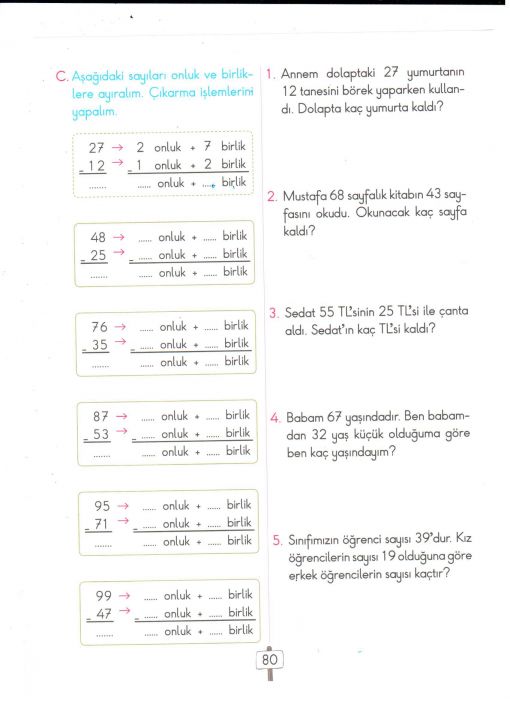 C. Aşağıdaki sayıları onluk ve birlik-
lere ayıralım. Çıkarma işlemlerini
yapalım.
27 → 2 onluk + 7 birlik
- 12 → - 1 onluk + 2 birlik
....... ...... onluk + ...... birlik
48 → ...... onluk + ...... birlik
- 25 → - ...... onluk + ...... birlik
....... ...... onluk + ...... birlik
76 → ...... onluk + ...... birlik
- 35 → - ...... onluk + ...... birlik
....... ...... onluk + ...... birlik
87 → ...... onluk + ...... birlik
- 53 → - ...... onluk + ...... birlik
....... ...... onluk + ...... birlik
95 → ...... onluk + ...... birlik
- 71 → - ...... onluk + ...... birlik
....... ...... onluk + ...... birlik
99 → ...... onluk + ...... birlik
- 47 → - ...... onluk + ...... birlik
....... ...... onluk + ...... birlik
1. Annem dolaptaki 27 yumurtanın
12 tanesini börek yaparken kullan-
dı. Dolapta kaç yumurta kaldı?
2. Mustafa 68 sayfalık kitabın 43 say-
fasını okudu. Okunacak kaç sayfa
kaldı?
3. Sedat 55 TL'sinin 25 TL'si ile çanta
aldı. Sedat'ın kaç TL'si kaldı?
4. Babam 67 yaşındadır. Ben babam-
dan 32 yaş küçük olduğuma göre
ben kaç yaşındayım?
5. Sınıfımızın öğrenci sayısı 39'dur. Kız
öğrencilerin sayısı 19 olduğuna göre
erkek öğrencilerin sayısı kaçtır?
80